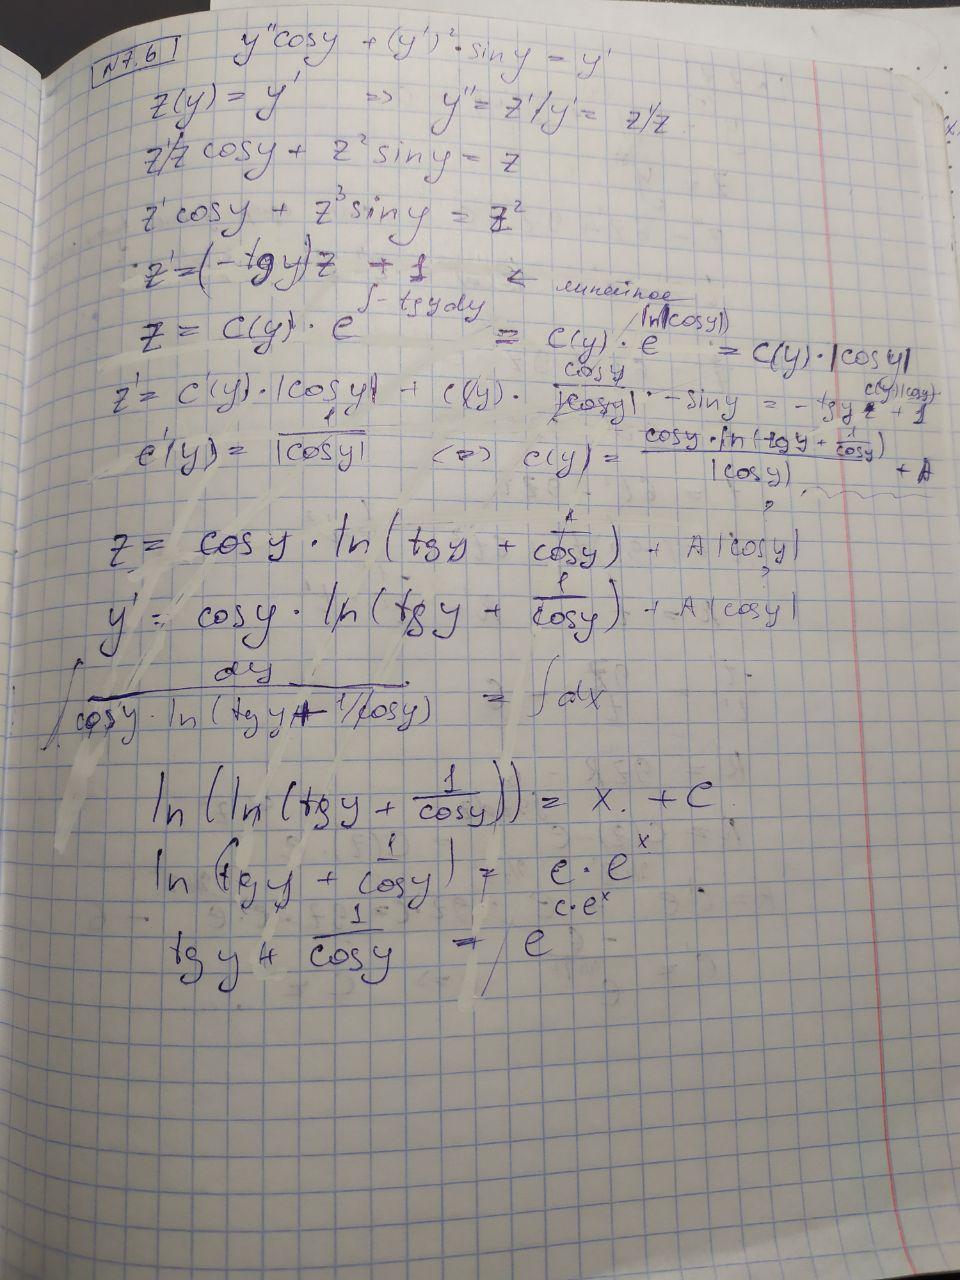 №7.6 y''cosy + (y')²·siny = y'
z(y) = y' => y'' = z'/y' = z'/z
z'/z cosy + z² siny = z
z' cosy + z³ siny = z²
z' = (-tgy)z + 1 ← линейное
z = C(y)·e^{∫-tgydy} = C(y)·e^{ln|cosy|} = C(y)·|cosy|
z' = C'(y)·|cosy| + C(y)·cosy/|cosy|·-siny = -tgy C(y)|cosy| + 1
C'(y) = 1/|cosy| <=> C(y) = cosy·ln(tgy + 1/cosy)/|cosy| + A
z = cosy·ln(tgy + 1/cosy) + A|cosy|
y' = cosy·ln(tgy + 1/cosy) + A|cosy|
∫ dy/(cosy·ln(tgy + 1/cosy)) = ∫dx
ln(ln(tgy + 1/cosy)) = x + C
ln(tgy + 1/cosy) = c·e^x
tgy + 1/cosy = e^{c·e^x}